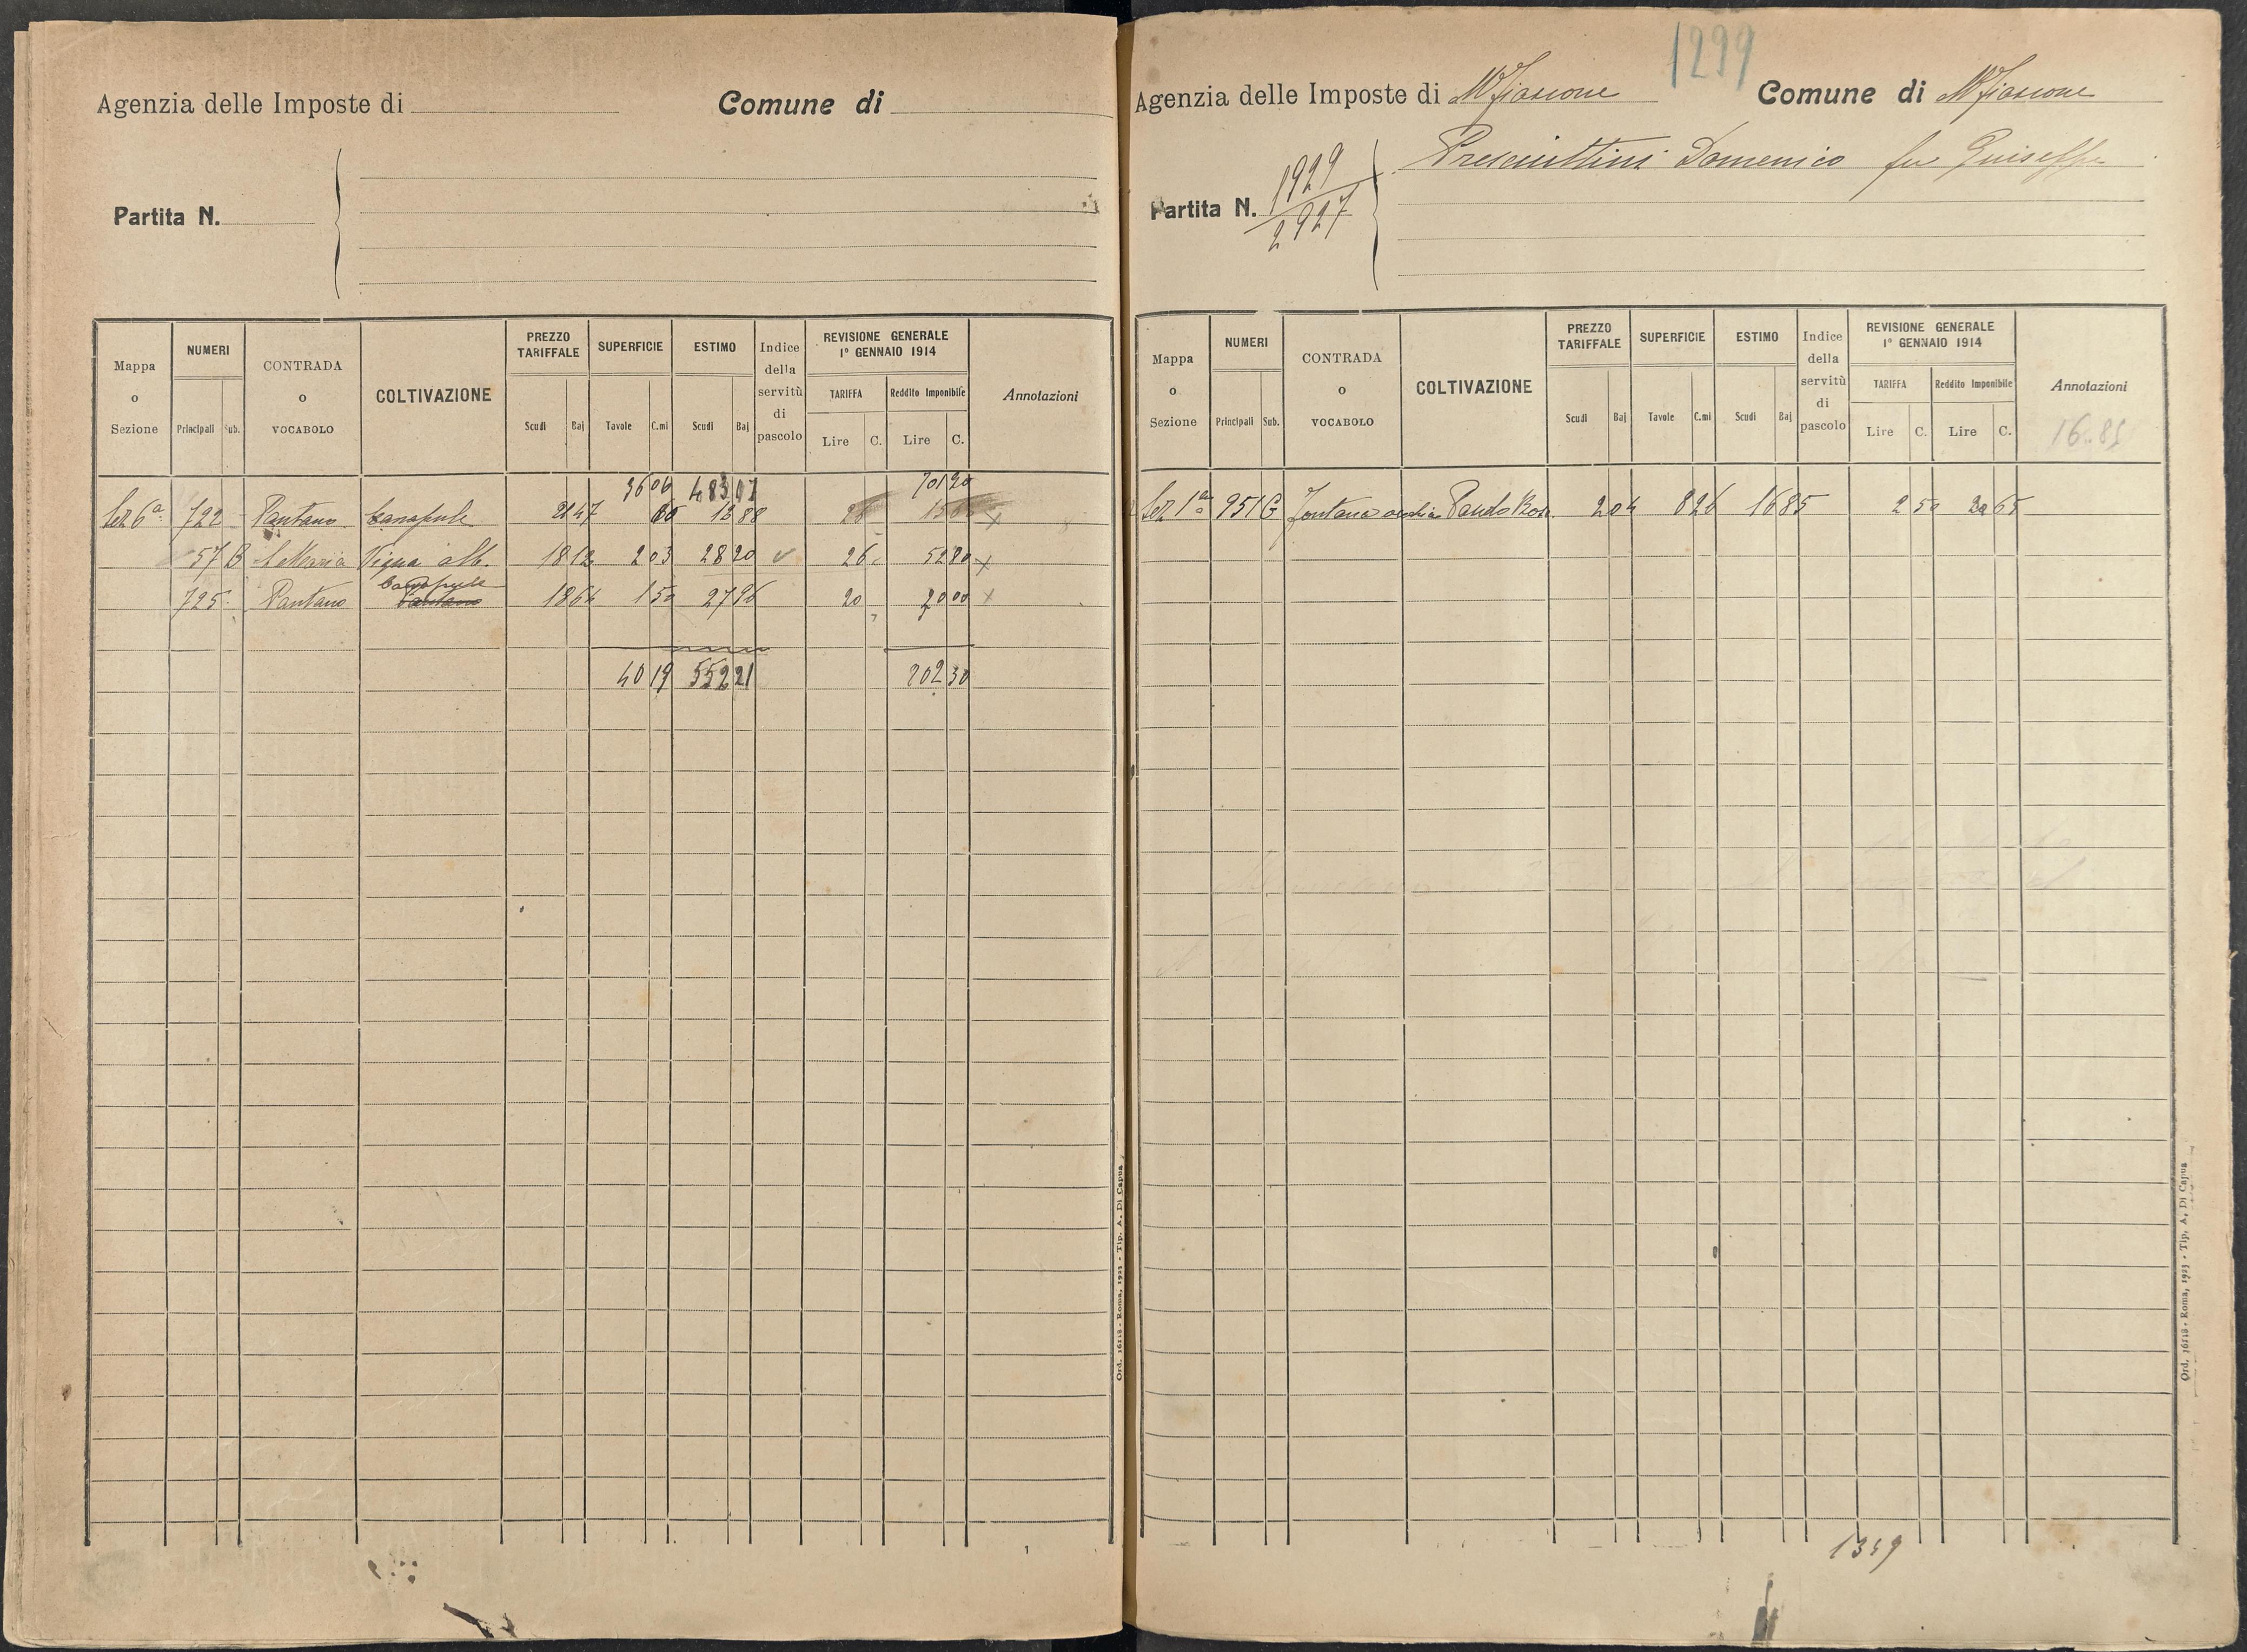 Agenzia delle Imposte di
Comune di
Partita N.
Mappa o Sezione
NUMERI
Principali
Sub.
CONTRADA o VOCABOLO
COLTIVAZIONE
PREZZO TARIFFALE
Scudi
Baj
SUPERFICIE
Tavole
C.mi
ESTIMO
Scudi
Baj
Indice della servitù di pascolo
REVISIONE GENERALE 1° GENNAIO 1914
TARIFFA
Lire
C.
Reddito Imponibile
Lire
C.
Annotazioni
36 06 483 07 701 20
Sez 6a 722 Pantano Canapule 21 47 60 12 88 26
57 B Vigna alb. 18 12 2 03 28 20 v 26 52 80 x
725 Pantano Canapule Pantano 18 64 1 50 27 96 20 x
40 19 552 21 202 30
Ord. 16518 - Roma, 1923 - Tip. A. Di Capua
1299
Agenzia delle Imposte di Mfiascone
Comune di Mfiascone
Partita N. 1929
2927
Presciuttini Domenico fu Guiseppe
Mappa o Sezione
NUMERI
Principali
Sub.
CONTRADA o VOCABOLO
COLTIVAZIONE
PREZZO TARIFFALE
Scudi
Baj
SUPERFICIE
Tavole
C.mi
ESTIMO
Scudi
Baj
Indice della servitù di pascolo
REVISIONE GENERALE 1° GENNAIO 1914
TARIFFA
Lire
C.
Reddito Imponibile
Lire
C.
Annotazioni
16.85
Sez 1a 951 G Fontana 2 04 8 26 16 85 2 50 20 65
1359
Ord. 16518 - Roma, 1923 - Tip. A. Di Capua